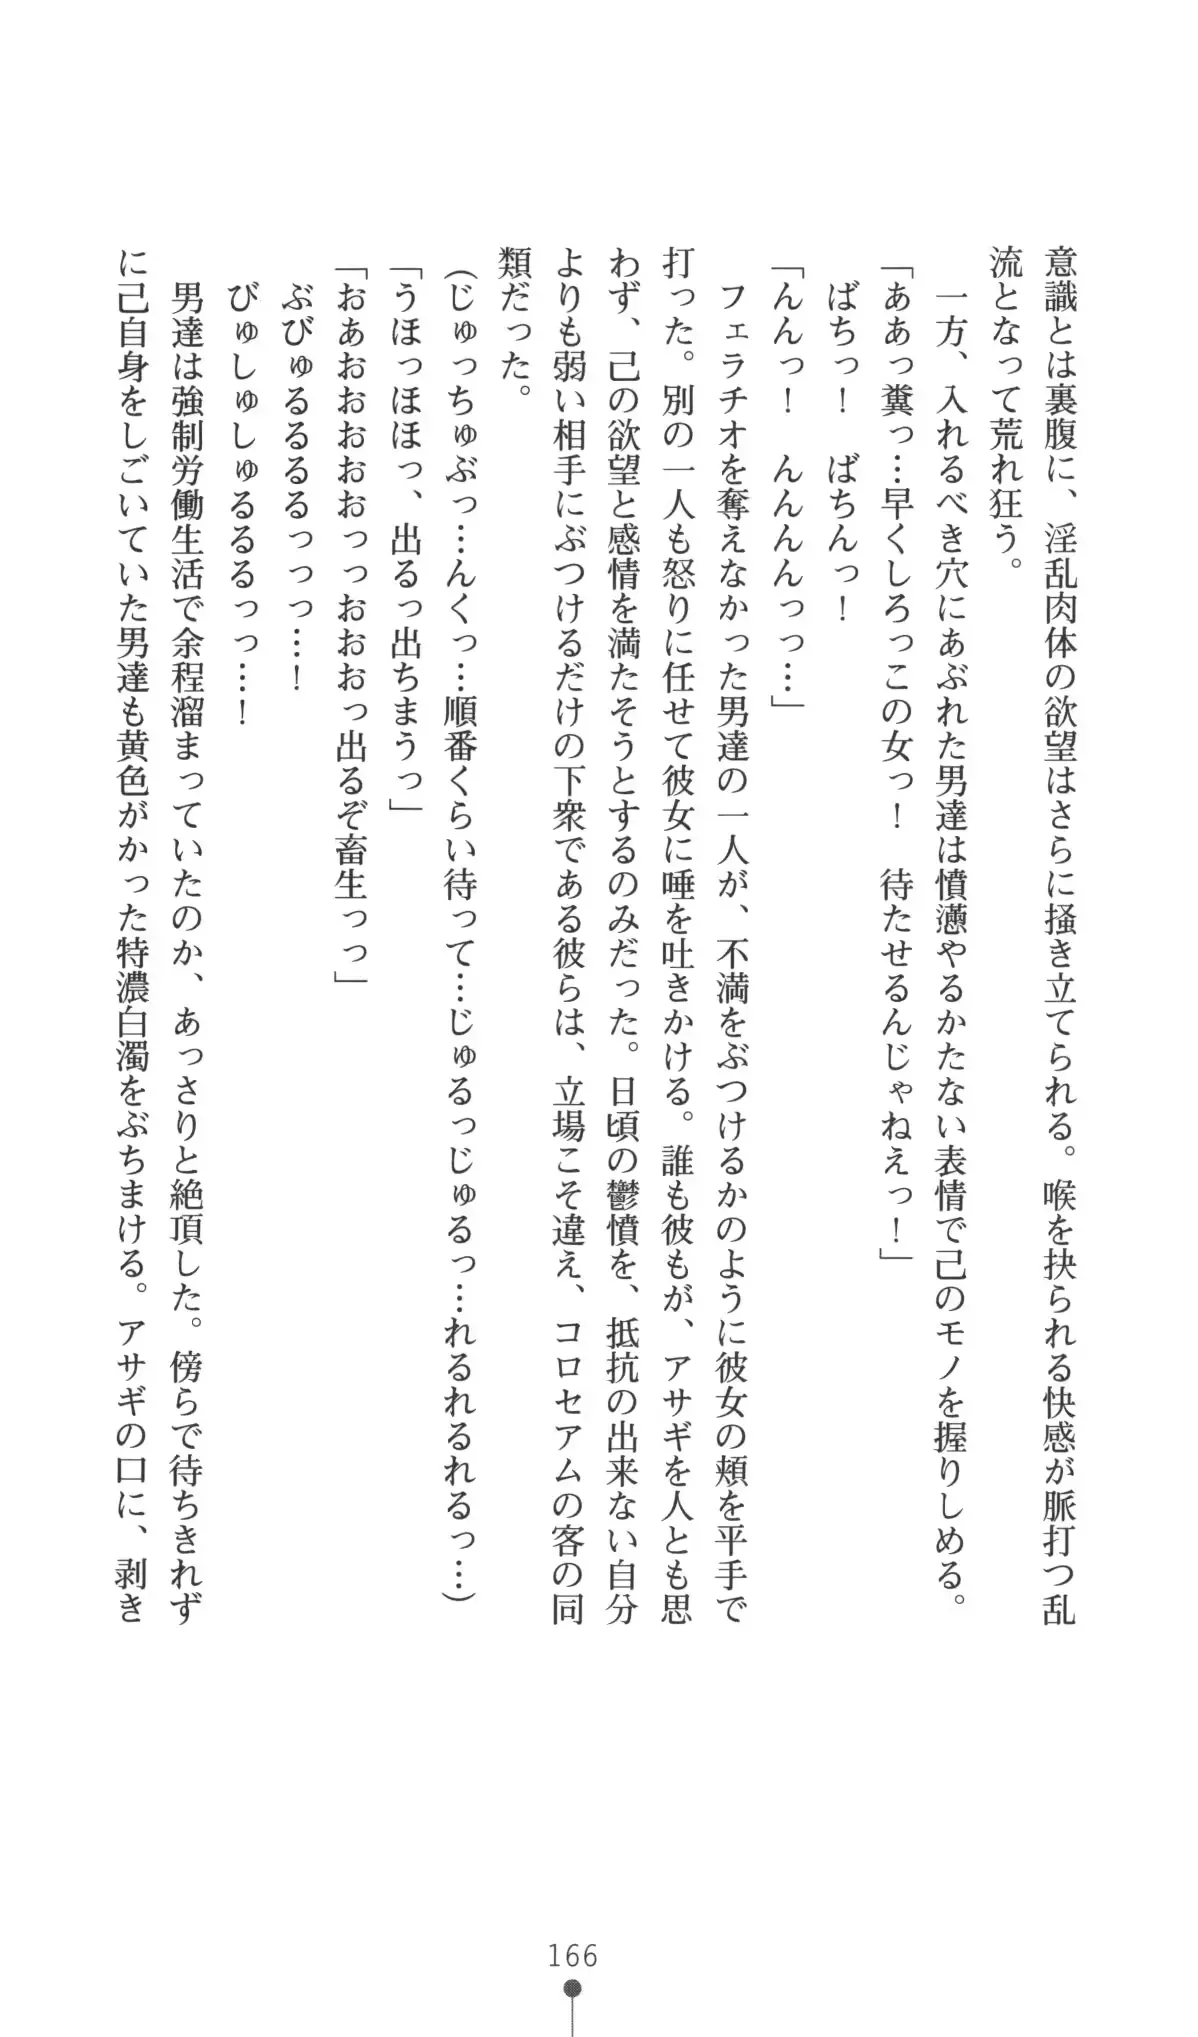 意識とは裏腹に、淫乱肉体の欲望はさらに掻き立てられる。喉を抉られる快感が脈打つ乱
流となって荒れ狂う。
　一方、入れるべき穴にあぶれた男達は憤懣やるかたない表情で己のモノを握りしめる。
「ああっ糞っ…早くしろっこの女っ！　待たせるんじゃねえっ！」
　ばちっ！　ばちんっ！
「んんっ！　んんんんっっ…」
　フェラチオを奪えなかった男達の一人が、不満をぶつけるかのように彼女の頬を平手で
打った。別の一人も怒りに任せて彼女に唾を吐きかける。誰も彼もが、アサギを人とも思
わず、己の欲望と感情を満たそうとするのみだった。日頃の鬱憤を、抵抗の出来ない自分
よりも弱い相手にぶつけるだけの下衆である彼らは、立場こそ違え、コロセアムの客の同
類だった。
（じゅっちゅぶっ…んくっ…順番くらい待って…じゅるっじゅるっ…れるれるれるっ…）
「うほっほほっ、出るっ出ちまうっ」
「おぁおおおおっっおおおっ出るぞ畜生っっ」
　ぶびゅるるるるっっっ…！
　びゅしゅしゅるるるっっ…！
　男達は強制労働生活で余程溜まっていたのか、あっさりと絶頂した。傍らで待ちきれず
に己自身をしごいていた男達も黄色がかった特濃白濁をぶちまける。アサギの口に、剥き
166